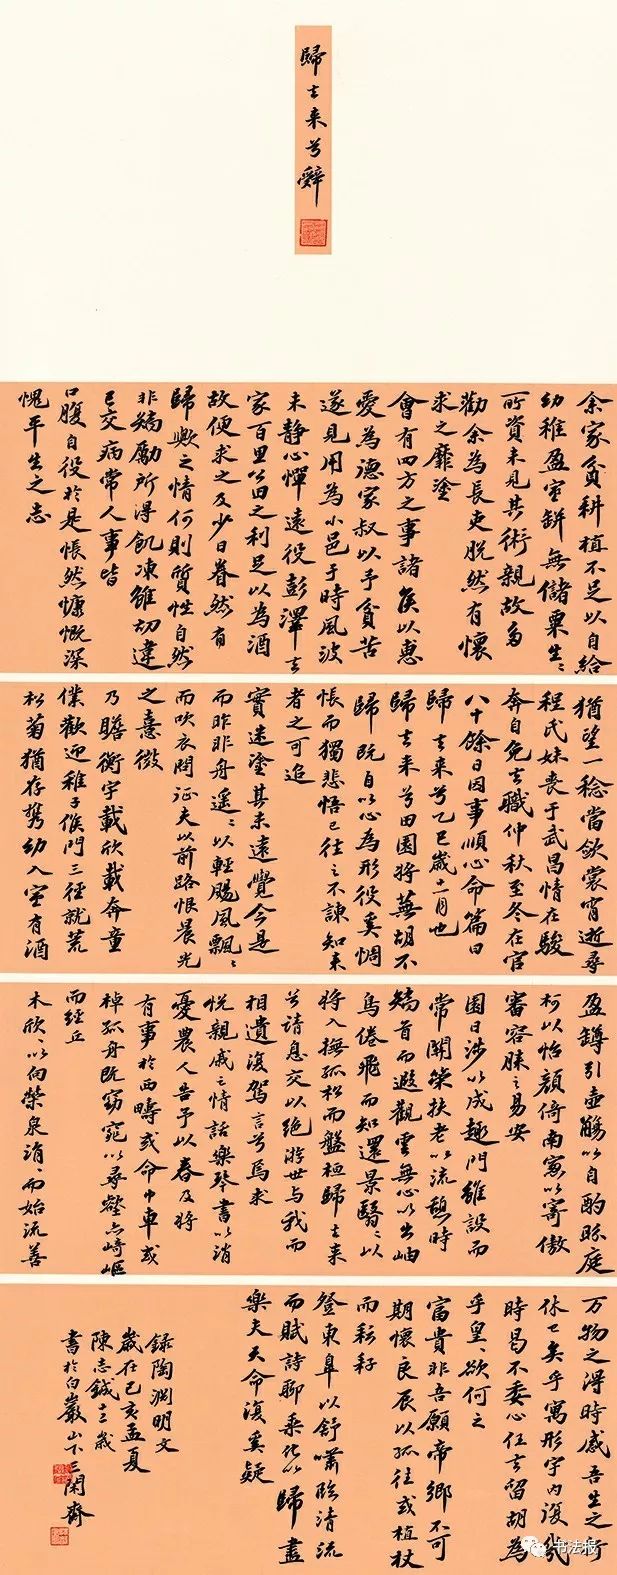 歸去来兮辭
余家貧耕植不足以自給
幼稚盈室缾無儲粟生〻
所資未見其術親故多
勸余為長吏脫然有懷
求之靡塗
會有四方之事諸侯以惠
愛為德家叔以予貧苦
遂見用為小邑于時風波
未静心憚遠役彭澤去
家百里公田之利足以為酒
故便求之及少日眷然有
歸歟之情何則質性自然
非矯勵所得飢凍雖切違
己交病常人事皆
口腹自役於是悵然慷慨深
愧平生之志
猶望一稔當斂裳宵逝尋
程氏妹喪于武昌情在駿
奔自免去職仲秋至冬在官
八十餘日因事順心命篇曰
歸去来兮乙巳歲十一月也
歸去来兮田園將蕪胡不
歸既自以心為形役奚惆
悵而獨悲悟已往之不諫知来
者之可追
實迷塗其未遠覺今是
而昨非舟遥〻以輕颺風飄〻
而吹衣問征夫以前路恨晨光
之熹微
乃瞻衡宇載欣載奔童
僕歡迎稚子候門三徑就荒
松菊猶存携幼入室有酒
盈罇引壺觴以自酌眄庭
柯以怡顏倚南窓以寄傲
審容膝之易安
園日涉以成趣門雖設而
常關策扶老以流憩時
矯首而遐觀雲無心以出岫
鳥倦飛而知還景翳〻以
將入撫孤松而盤桓歸去来
兮請息交以絕游世与我而
相遺復駕言兮焉求
悅親戚之情話樂琴書以消
憂農人告予以春及將
有事於西疇或命巾車或
棹孤舟既窈窕以尋壑亦崎嶇
而經丘
木欣〻以向榮泉涓〻而始流善
万物之得時感吾生之行
休已矣乎寓形宇内復幾
時曷不委心任去留胡為
乎皇〻欲何之
富貴非吾願帝鄉不可
期懷良辰以孤往或植杖
而耘耔
登東皐以舒嘯臨清流
而賦詩聊乘化以歸盡
樂夫天命復奚疑
録陶淵明文
歲在己亥孟夏
陳志鋮十三歲
書於白巖山下三閑齋
书法报